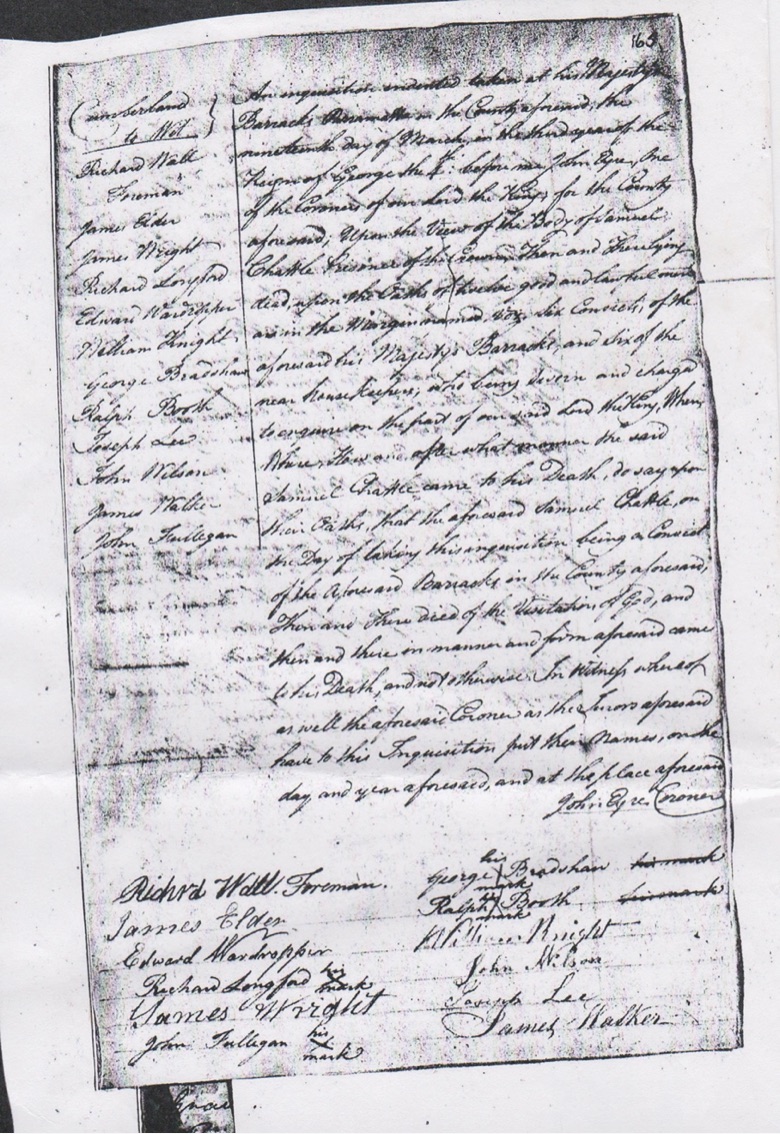 165
Cumberland
to Wit
Richard Wall
Foreman
James Elder
James Wright
Richard Longford
Edward Wardropper
William Knight
George Bradshaw
Ralph Booth
Joseph Lee
John Wilson
James Walker
John Fullegan
An inquisition indented taken at his Majestys
Barracks Parramatta in the County aforesaid, the
nineteenth day of March, in the third year of the
Reign of George the 4th. before me John Eyre, One
of the Coroners of our Lord the King, for the County
aforesaid, Upon the View of the Body of Samuel
Chattle Prisoner of the Crown, Then and There lying
dead, upon the Oaths of twelve good and lawful men
as in the Margin named, viz. Six Convicts, of the
aforesaid his Majesty's Barracks, and six of the
near housekeepers, who being sworn and charged
to enquire on the part of our said Lord the King, When,
Where, How and after what manner the said
Samuel Chattle came to his Death, do say upon
their Oaths, that the aforesaid Samuel Chattle, on
the Day of taking this inquisition being a Convict
of the Aforesaid Barracks in the County aforesaid,
Then and There died of the Visitation of God, and
then and there in manner and form aforesaid came
to his Death, and not otherwise. In Witness whereof
as well the aforesaid Coroner as the Jurors aforesaid
have to this Inquisition put their Names, on the
day and year aforesaid, and at the place aforesaid
John Eyre Coroner
Richrd Wall. Foreman.
James Elder
Edward Wardropper
Richard Longford his X mark
James Wright
John Fullegan his X mark
George his mark Bradshaw his mark
Ralph his mark Booth his mark
William Knight
John Wilson
Joseph Lee
James Walker